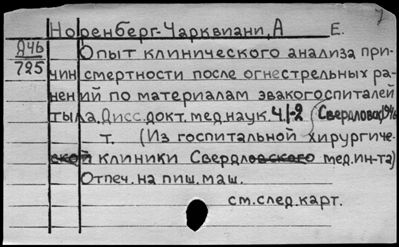 Норенберг-Чарквиани, А Е.
Д46
725
Опыт клинического анализа при-
чин смертности после огнестрельных ра-
нений по материалам эвакогоспиталей
тыла, Дисс. докт. мед. наук. Ч.1-2 Свердловск,
т. (Из госпитальной хирургиче-
ской клиники Свердловского мед. ин-та)
Отпеч. на пиш. маш.
см. след. карт.